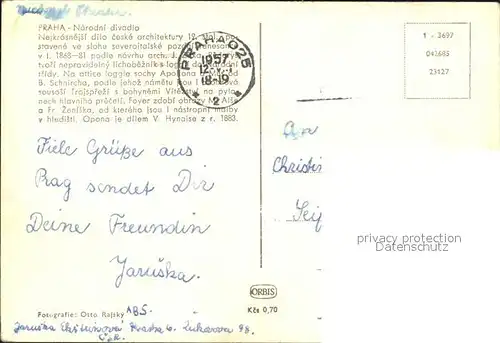 PRAHA - Národní divadlo
Nejkrásnější dílo české architektury 19.
staveno ve slohu severoitalské pozdní
v l. 1868-81 podle návrhu arch. J.
tvoří nepravidelný lichoběžník
třídy. Na attice loggie sochy Apolona
B. Schnircha, podle jehož námětu jsou
sousoší Trojspřeží s bohyněmi Vítězství na pylo-
nech hlavního průčelí. Foyer zdobí obrazy M. Alše
a Fr. Ženíška, od kterého jsou i nástropní malby
v hledišti. Opona je dílem V. Hynaise z r. 1883.
PRAHA 025
1957
18-19
2
1 - 3697
042685
23127
An
Christi
Seif
Viele Grüße aus
Prag sendet Dir
Deine Freundin
Jaruška.
privacy protection
Datenschutz
ORBIS
Kčs 0,70
Fotografie: Otto Rajský ABS.
Jaruška Praha 6. Zukarova 98.
ČSR.